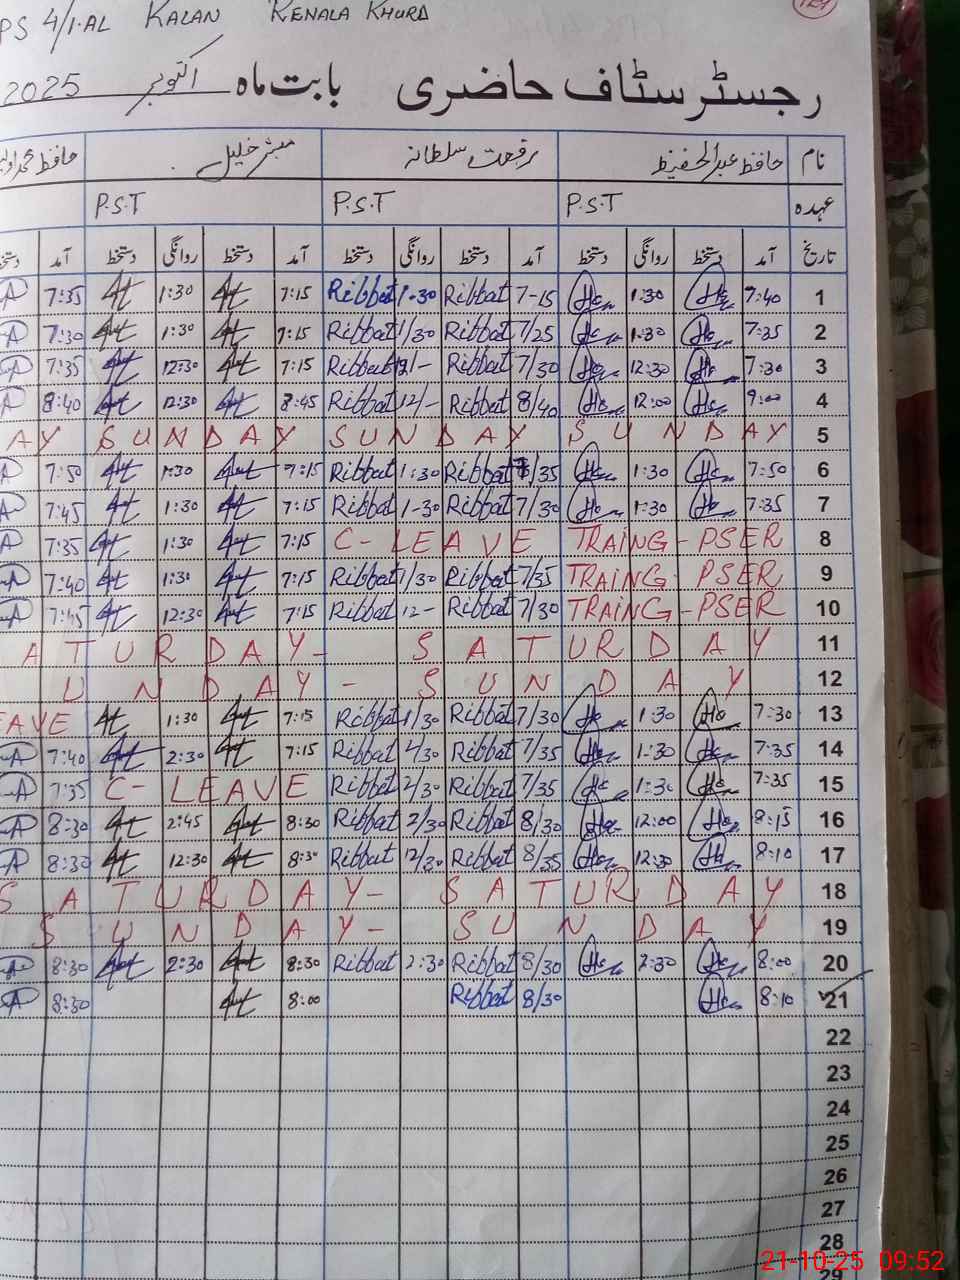 PS 4/1.AL KALAN RENALA KHURD
رجسٹر سٹاف حاضری بابت ماہ اکتوبر 2025
نام حافظ عبدالحفیظ رفعت سلطانہ مبشر خلیل حافظ محمد
عہدہ P.S.T P.S.T P.S.T
تاریخ آمد دستخط روانگی دستخط آمد دستخط روانگی دستخط آمد دستخط روانگی دستخط آمد
1 7:40 He 1:30 He 7-15 Ribbat 1-30 Ribbat 7:15 1:30 7:35 A
2 7:35 He 1:30 He 7/25 Ribbat 1/30 Ribbat 7:15 1:30 7:30 A
3 7:30 He 12:30 He 7/30 Ribbat Ribbat 7:15 12:30 7:35 A
4 9:00 He 12:00 He 8/40 Ribbat 12/- Ribbat 8:45 12:30 8:40 A
5 SUNDAY SUNDAY SUNDAY AY
6 7:50 He 1:30 He 7/35 Ribbat 1:30 Ribbat 7:15 1:30 7:50 A
7 7:35 He 1:30 He 7/30 Ribbat 1-30 Ribbat 7:15 1:30 7:45 A
8 TRAING-PSER C-LEAVE 7:15 1:30 7:35 A
9 TRAING-PSER 7/35 Ribbat 1/30 Ribbat 7:15 1:30 7:40 A
10 TRAING-PSER 7/30 Ribbat 12- Ribbat 7:15 12:30 7:45 A
11 ATURDAY- SATURDAY
12 UNDAY- SUNDAY
13 7:30 He 1:30 He 7/30 Ribbat 1/30 Ribbat 7:15 1:30 EAVE
14 7:35 He 1:30 He 7/35 Ribbat Ribbat 7:15 2:30 7:40 A
15 7:35 He 1:30 He 7/35 Ribbat 2/30 Ribbat C-LEAVE 7:35 A
16 8:15 He 12:00 He 8/30 Ribbat 2/30 Ribbat 8:30 2:45 8:30 A
17 8:10 He 12:30 He 8/35 Ribbat 12/30 Ribbat 8:30 12:30 8:30 A
18 SATURDAY- SATURDAY
19 SUNDAY- SUNDAY
20 8:00 He 2:30 He 8/30 Ribbat 2:30 Ribbat 8:30 2:30 8:30 A
21 8:10 He 8/30 Ribbat 8:00 8:30 A
22
23
24
25
26
27
28
29
21-10-25 09:52